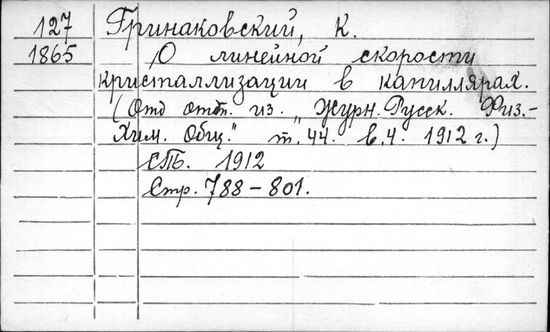 127 Гринаковский, К.
1865 О линейной скорости
кристаллизации в капиллярах.
(Отд отт. из „Журн. Русск. Физ.-
Хим. Общ." т. 44. в. 4. 1912 г.)
СПБ. 1912
Стр. 788-801.